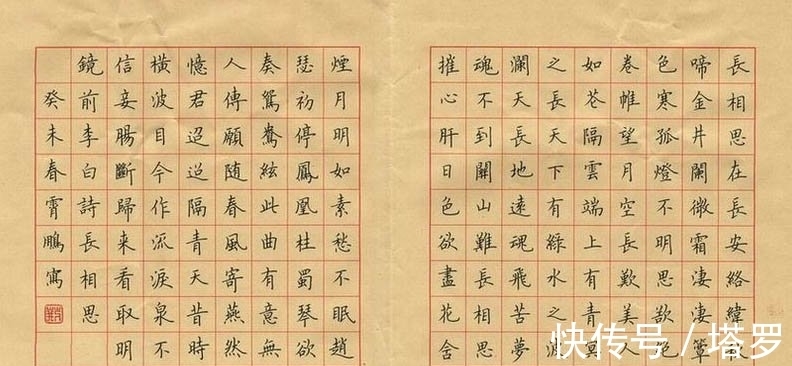 長相思在長安絡緯秋
啼金井闌微霜淒淒簟
色寒孤燈不明思欲绝
卷帷望月空長歎美人
如花隔雲端上有青冥
之長天下有綠水之波
瀾天長地遠魂飛苦夢
魂不到關山難長相思
摧心肝日色欲盡花含
煙月明如素愁不眠趙
瑟初停鳳凰柱蜀琴欲
奏鴛鴦絃此曲有意無
人傳願随春風寄燕然
憶君迢迢隔青天昔時
橫波目今作流淚泉不
信妾腸斷歸來看取明
鏡前李白詩長相思
癸未春霄鵬寫
快传号 / 塔罗